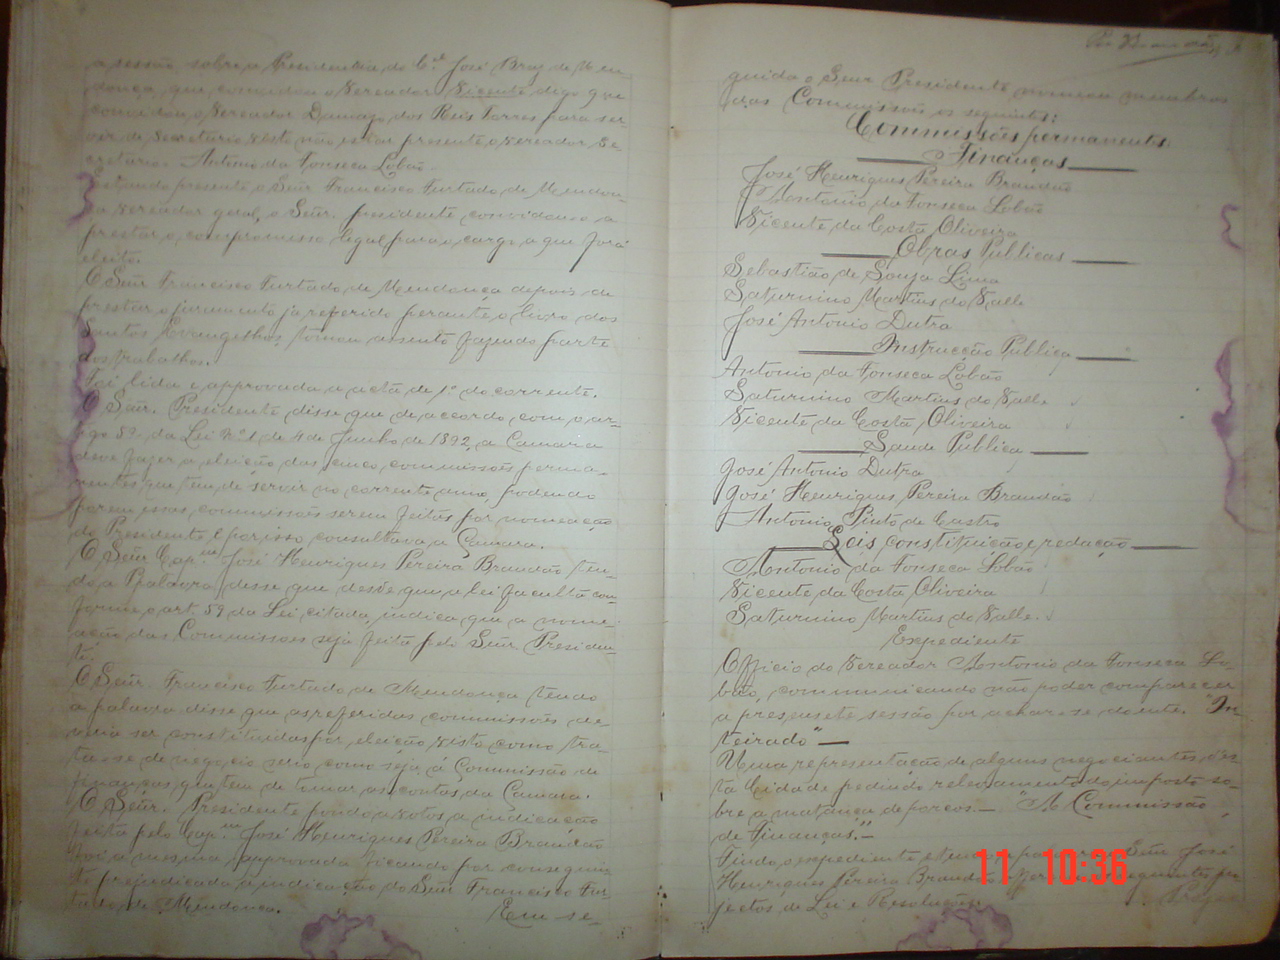 a sessão sobre a Presidencia do Cel José Braz de Men-
donça, que convidou o Vereador Vicente digo que
convidou o Vereador Damaso dos Reis Torres para ser-
vir de Secretario visto não estar presente o Vereador Se-
cretario. Antonio da Fonseca Lobão.
Estando presente o Snr Francisco Furtado de Mendon-
ça Vereador geral, o Señr. presidente convidou-o a
prestar o compromisso legal para o cargo a que fora
eleito.
O Señr Francisco Furtado de Mendonça depois de
prestar o juramento já referido perante o livro dos
Santos Evangelhos, tomou assento fazendo parte
dos trabalhos.
Foi lida e approvada a acta de 1º do corrente.
O Señr. Presidente disse que de accordo com o ar-
tigo 59 da Lei Nº 1 de 4 de Junho de 1892, a Camara
deve fazer a eleição das cinco commissões perma-
nentes que tem de servir no corrente anno, podendo
porem essas commissões serem feitas por nomeação
do Presidente, e por isso consultava a Camara.
O Señr Capm José Henriques Pereira Brandão ten-
do a Palavra disse que desde que a lei faculta con-
forme o art. 59 da Lei citada, indica que a nome-
ação das Commissões seja feita pelo Señr Presiden-
te.
O Señr. Francisco Furtado de Mendonça tendo
a palavra disse que as referidas commissões de-
veria ser constituidas por eleição visto como tra-
ta-se de negocio serio como seja a Commissão de
finanças que tem de tomar as contas da Camara.
O Señr. Presidente pondo a votos a indicação
feita pelo Capm José Henriques Pereira Brandão
foi a mesma approvada ficando por conseguin-
te prejudicada a indicação do Señr Francisco Fur-
tado de Mendonça. Em se-
guida o Señr Presidente nomeou membros
das Commissões os seguintes:
Commissões permanentes
Finanças
José Henriques Pereira Brandão
Antonio da Fonseca Lobão
Vicente da Costa Oliveira
Obras Publicas
Sebastião de Souza Lima
Saturnino Martins do Valle
José Antonio Dutra
Instrucção Publica
Antonio da Fonseca Lobão
Saturnino Martins do Valle
Vicente da Costa Oliveira
Saude Publica
José Antonio Dutra
José Henriques Pereira Brandão
Antonio Pinto de Castro
Leis constituição e redação
Antonio da Fonseca Lobão
Vicente da Costa Oliveira
Saturnino Martins do Valle
Expediente
Officio do Vereador Antonio da Fonseca Lo-
bão, communicando não poder comparecer
a presensete sessão por achar-se doente. "In-
teirado"
Uma representação de alguns negociantes d'es-
ta Cidade pedindo relevamento do imposto so-
bre a matança de porcos.— "A Commissão
de Finanças."—
Findo o expediente Señr José
Henriques Pereira Brandão seguintes pro-
jectos de Lei e Resoluções
11 10:36